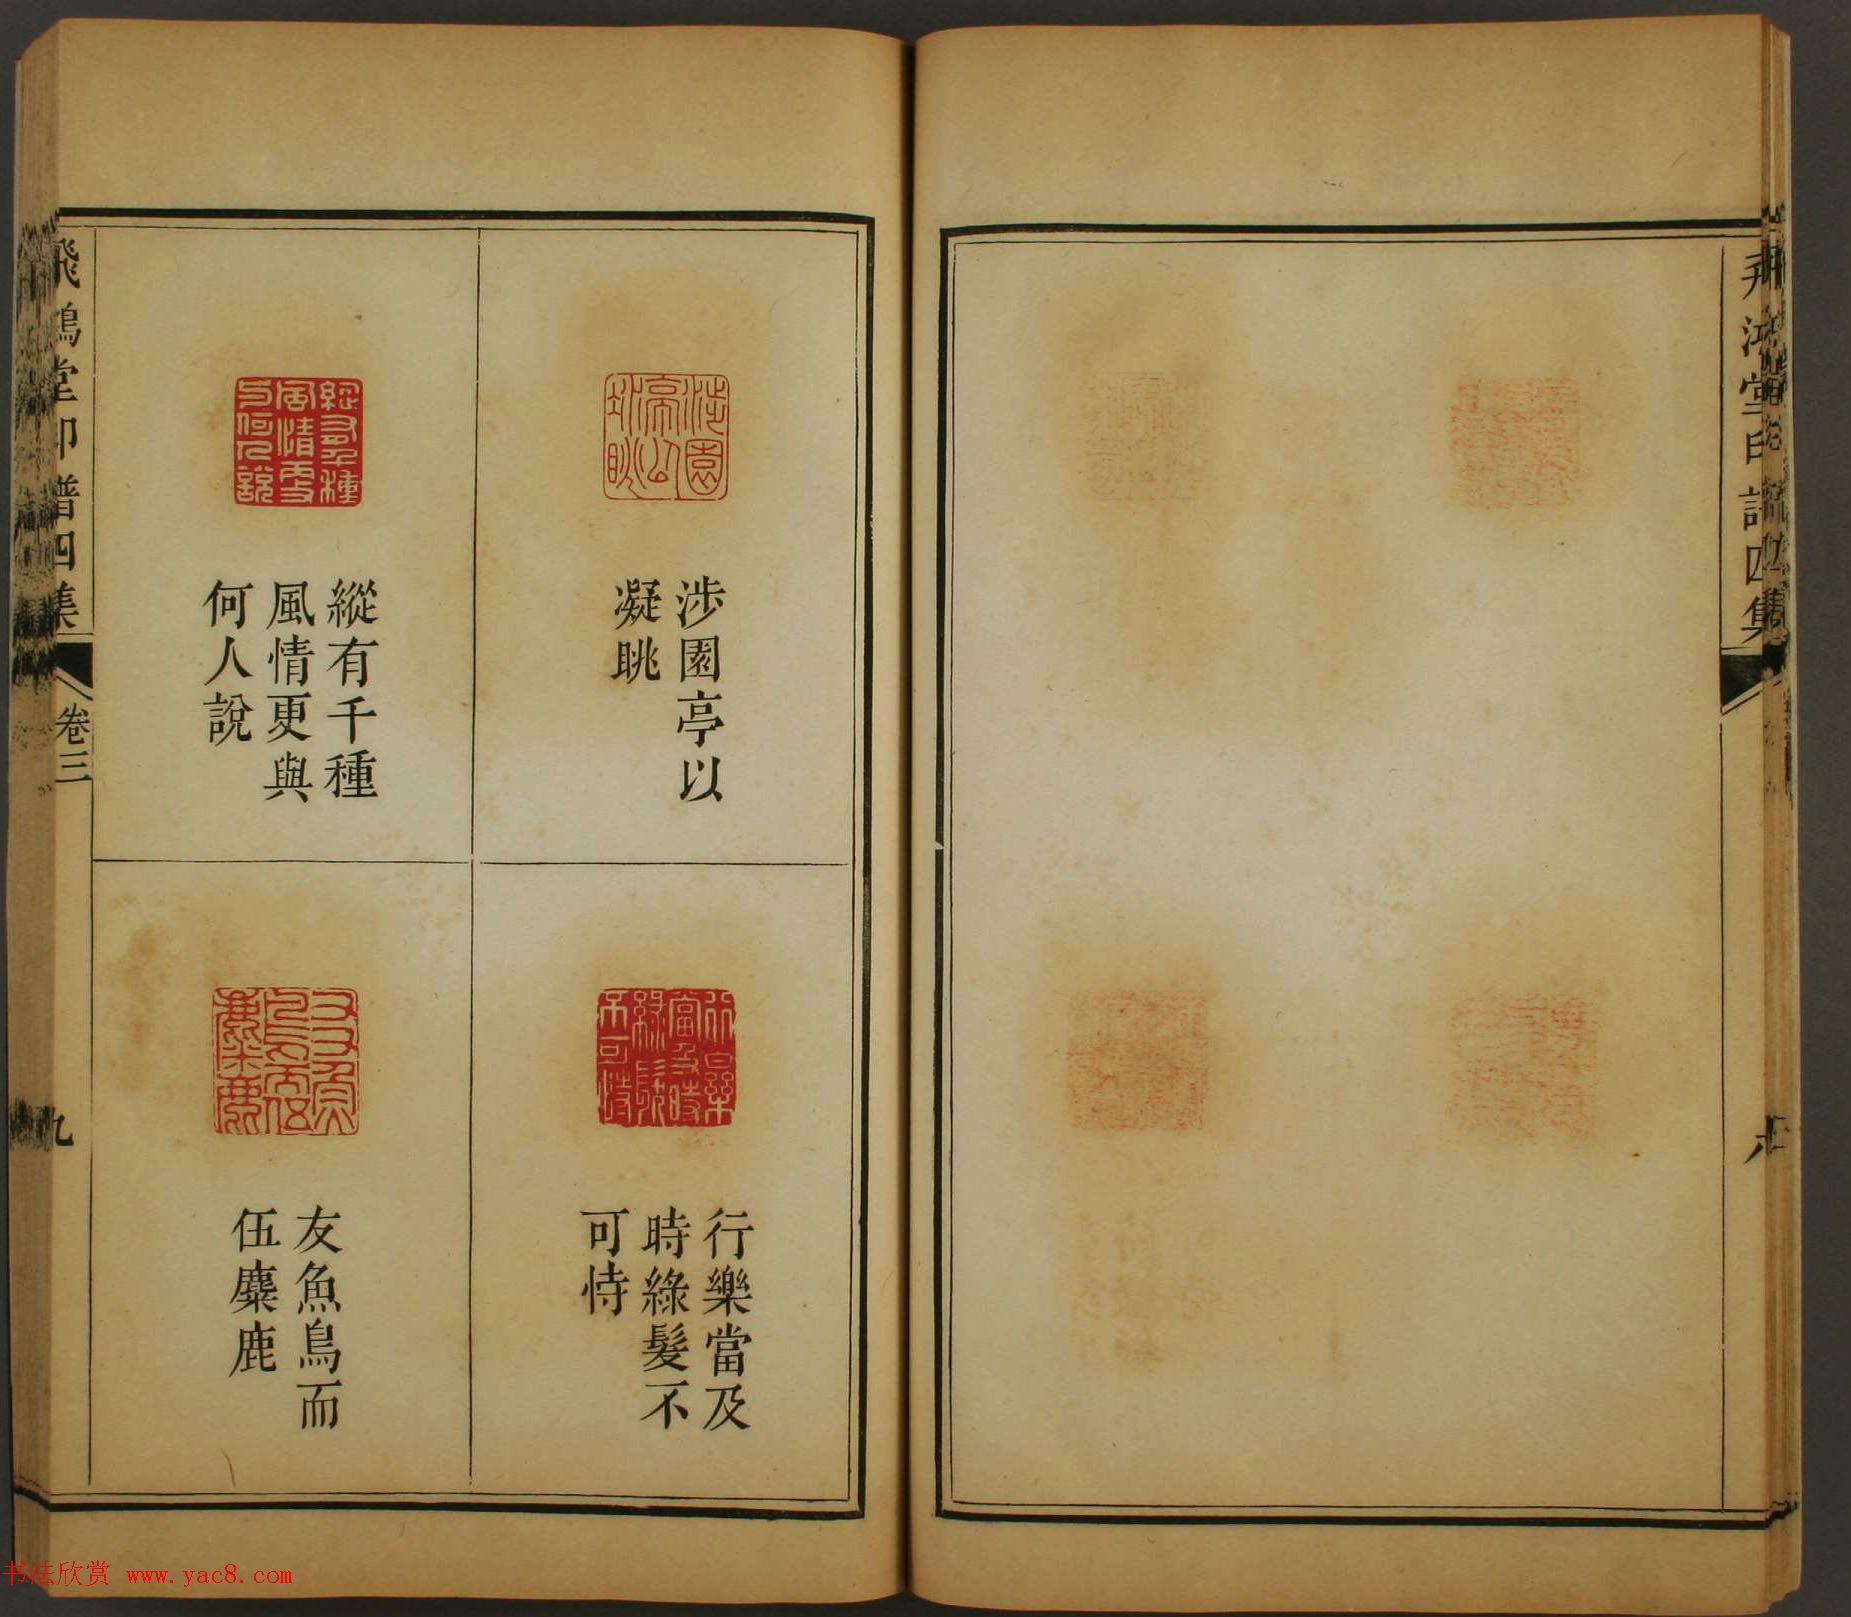 飛鴻堂印譜四集
涉園亭以
凝眺
行樂當及
時綠髮不
可恃
縱有千種
風情更與
何人說
友魚鳥而
伍麋鹿
飛鴻堂印譜四集
卷三
九
书法欣赏 www.yac8.com